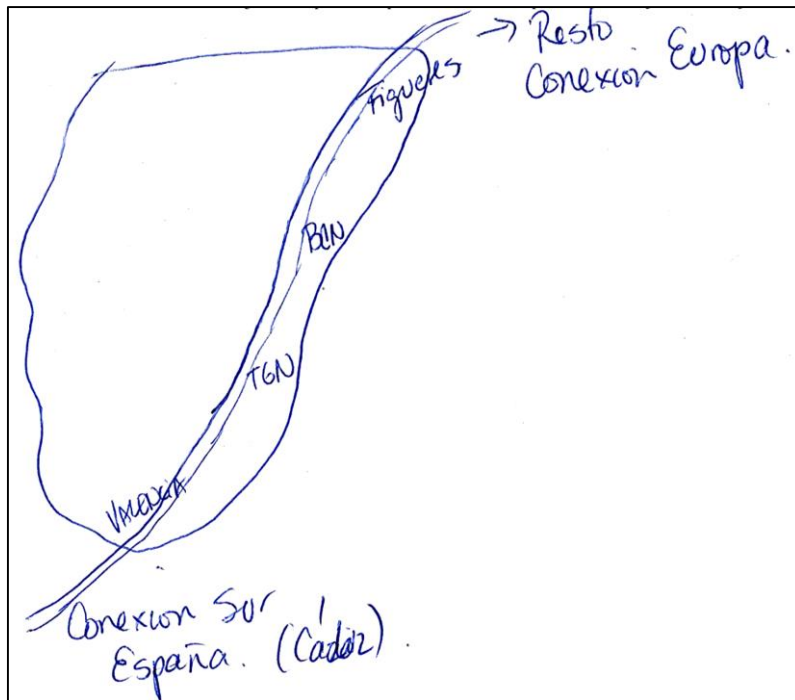 → Resto
Conexion Europa.
Figueres
BCN
TGN
VALENCIA
Conexion Sur
España. (Cádiz).